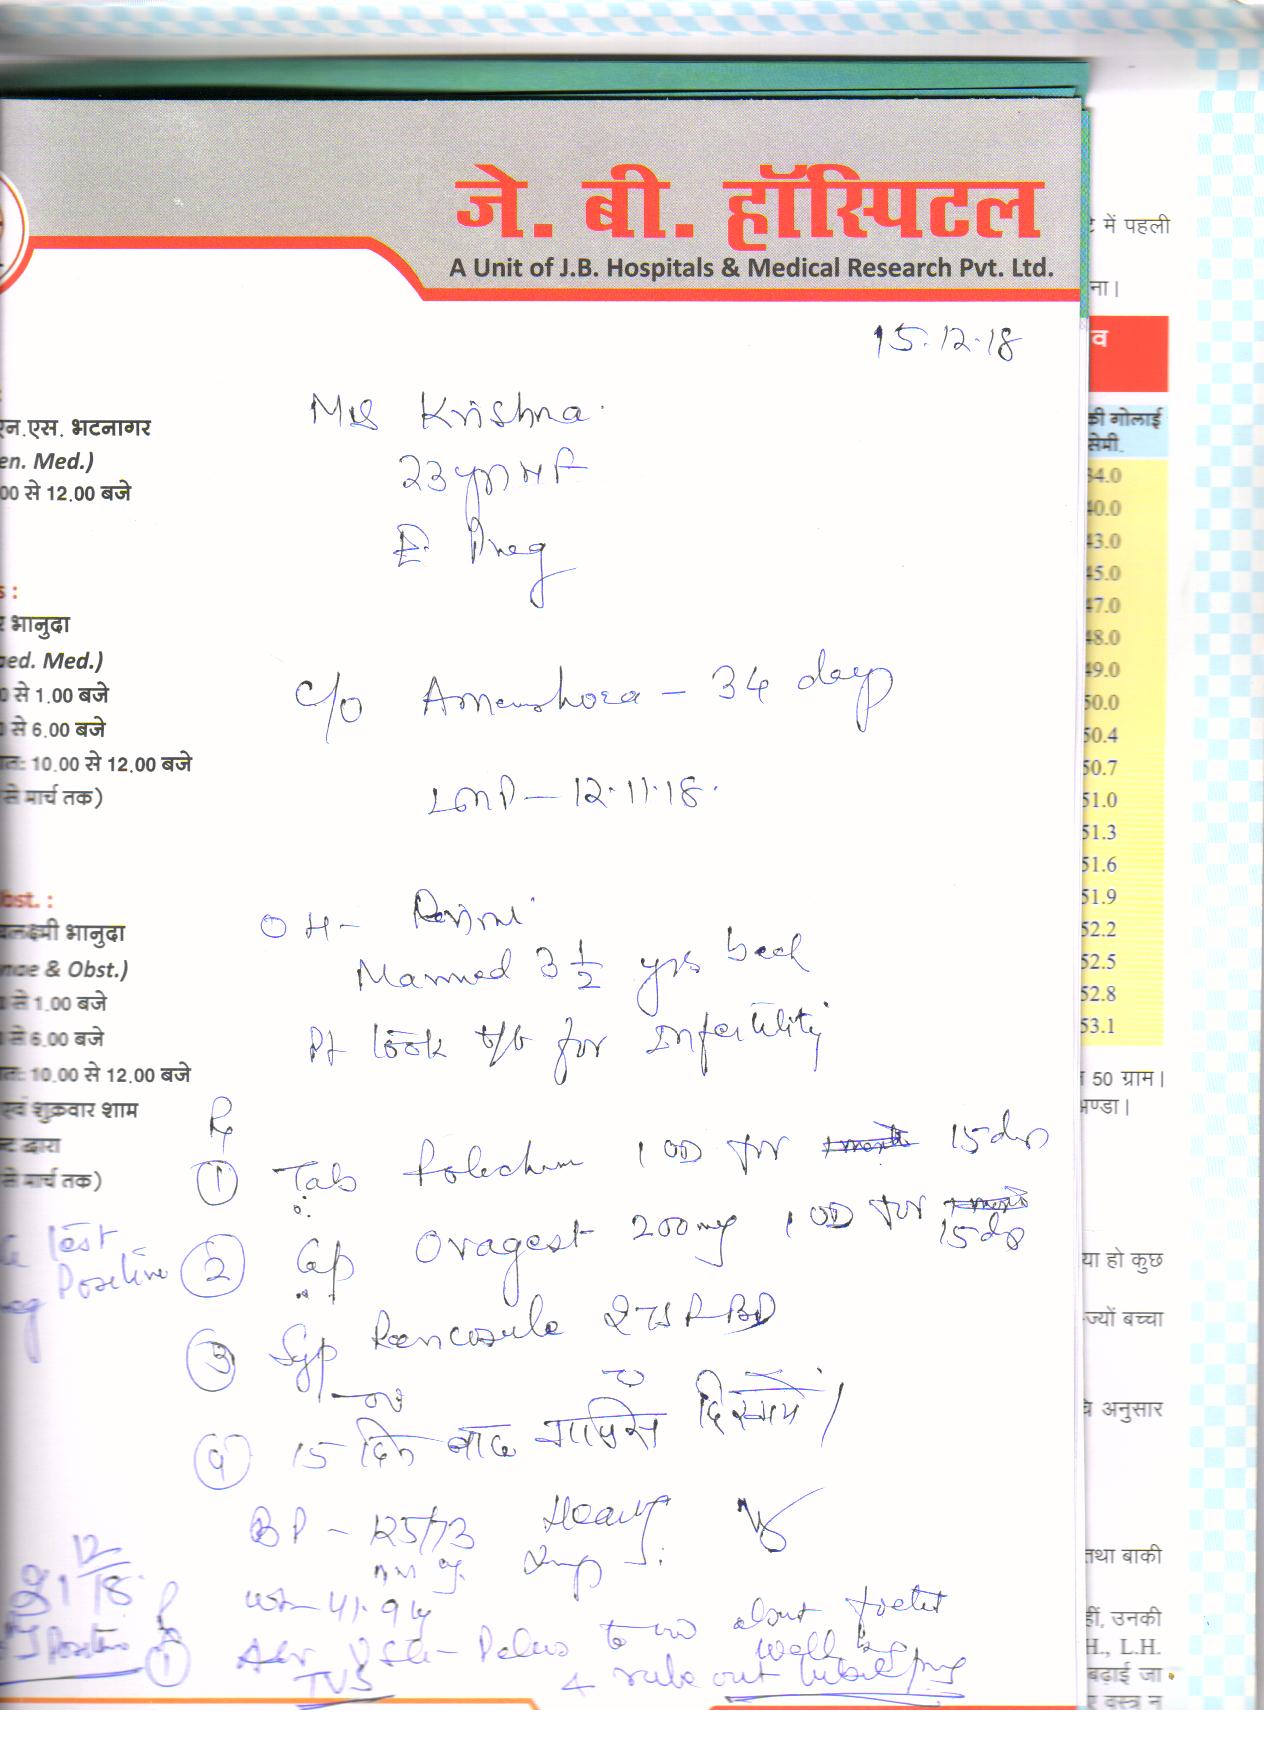 जे. बी. हॉस्पिटल
A Unit of J.B. Hospitals & Medical Research Pvt. Ltd.
15.12.18
Mrs Krishna
23 yrs H F
Preg
C/O Amenorrhoea - 34 days
LMP - 12.11.18.
OH - Primi
Married 3 1/2 yrs back
Pt took t/t for Infertility
Rx
① Tab Folecham 1 OD for 15 days
② Cap Ovagest 200mg 1 OD for 15 days
③ Syp 2 TSP BD
④ 15 दिन बाद वापिस दिखाये।
BP - 125/73 Heavy
mm Hg
wt - 41.9 kg
① Adv USG - Pelvis to about foetal
TVS & rule out tubal preg well being
एन.एस. भटनागर
en. Med.)
00 से 12.00 बजे
s :
र भानुदा
aed. Med.)
0 से 1.00 बजे
0 से 6.00 बजे
ात: 10.00 से 12.00 बजे
से मार्च तक)
Obst. :
यलक्ष्मी भानुदा
nae & Obst.)
से 1.00 बजे
से 6.00 बजे
ात: 10.00 से 12.00 बजे
एवं शुक्रवार शाम
न्ट द्वारा
से मार्च तक)
Test
Positive
21 12/18
Positive
टे में पहली
ना।
व
की गोलाई
सेमी.
34.0
40.0
43.0
45.0
47.0
48.0
49.0
50.0
50.4
50.7
51.0
51.3
51.6
51.9
52.2
52.5
52.8
53.1
50 ग्राम।
अण्डा।
या हो कुछ
ज्यों बच्चा
चे अनुसार
तथा बाकी
हीं, उनकी
H., L.H.
बढ़ाई जा
ए वस्त्र न